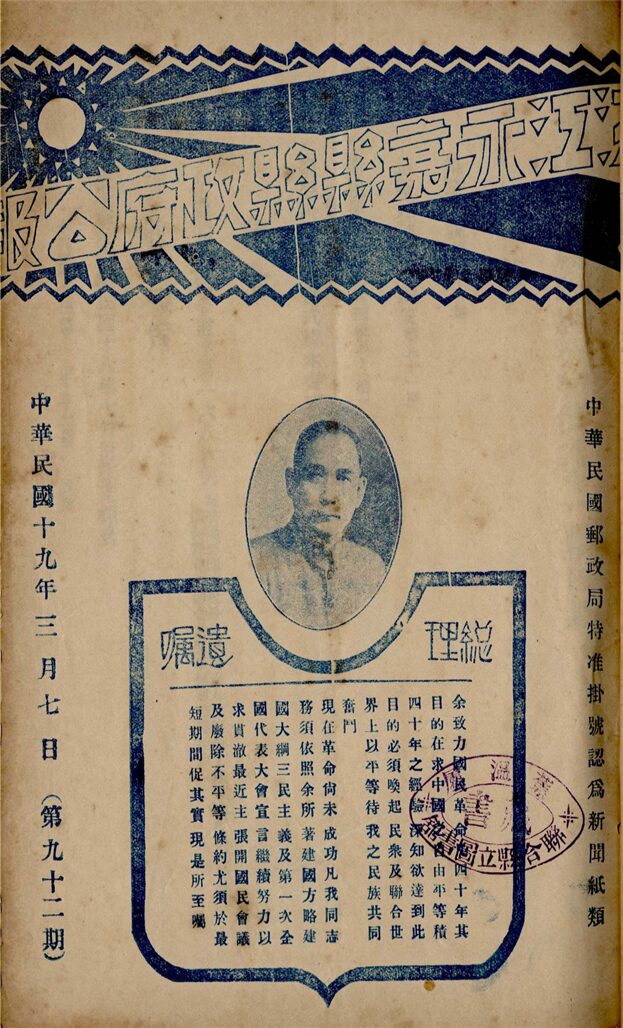 江永嘉縣縣政府公報
中華民國郵政局特准掛號認爲新聞紙類
總理
遺囑
余致力國民革命凡四十年其
目的在求中國之自由平等積
四十年之經驗深知欲達到此
目的必須喚起民衆及聯合世
界上以平等待我之民族共同
奮鬥
現在革命尙未成功凡我同志
務須依照余所著建國方略建
國大綱三民主義及第一次全
國代表大會宣言繼續努力以
求貫澈最近主張開國民會議
及廢除不平等條約尤須於最
短期間促其實現是所至囑
聯合縣立圖書館
藏書
中華民國十九年三月七日（第九十二期）